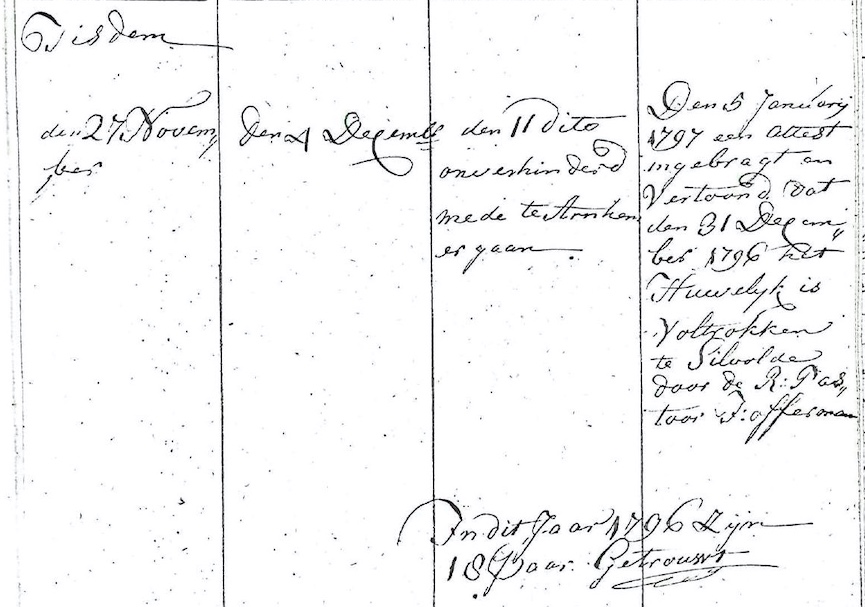 Tisdem
den 27 Novem„
ber
den 4 Decembr
den 11 Dito
onverhinderd
mede te Arnhem
er gaan.
Den 5 Januarij
1797 een attest
ingebragt en
Vertoond dat
den 31 Decem„
ber 1796 het
Huwelyk is
Voltrokken
te Silvolde
door de R: Pas„
toor F: offerman
In dit Jaar 1796 Zijn
18 Paar Getrouwt